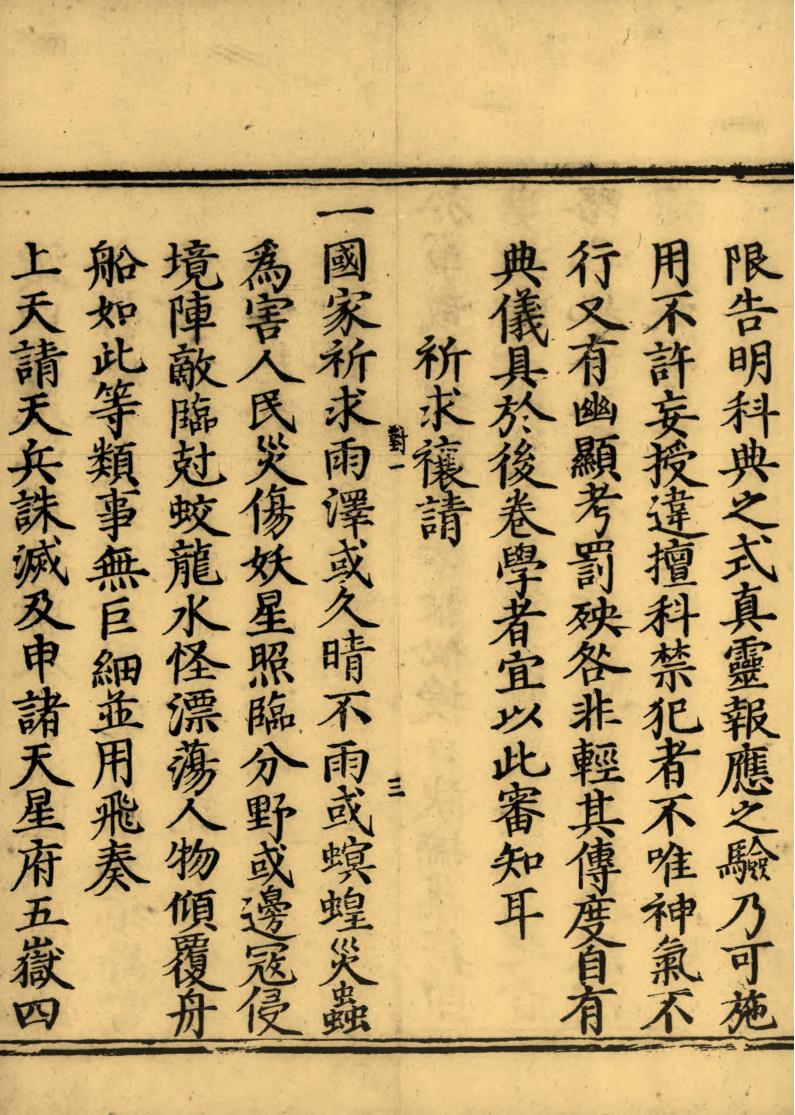 限告明科典之式真靈報應之驗乃可施
用不許妄授違擅科禁犯者不唯神氣不
行又有幽顯考罰殃咎非輕其傳度自有
典儀具於後卷學者宜以此審知耳
祈求禳請
對一 三
一國家祈求雨澤或久晴不雨或螟蝗災蟲
爲害人民災傷妖星照臨分野或邊寇侵
境陣敵臨尅蛟龍水怪漂蕩人物傾覆舟
船如此等類事無巨細並用飛奏
上天請天兵誅滅及申諸天星府五嶽四